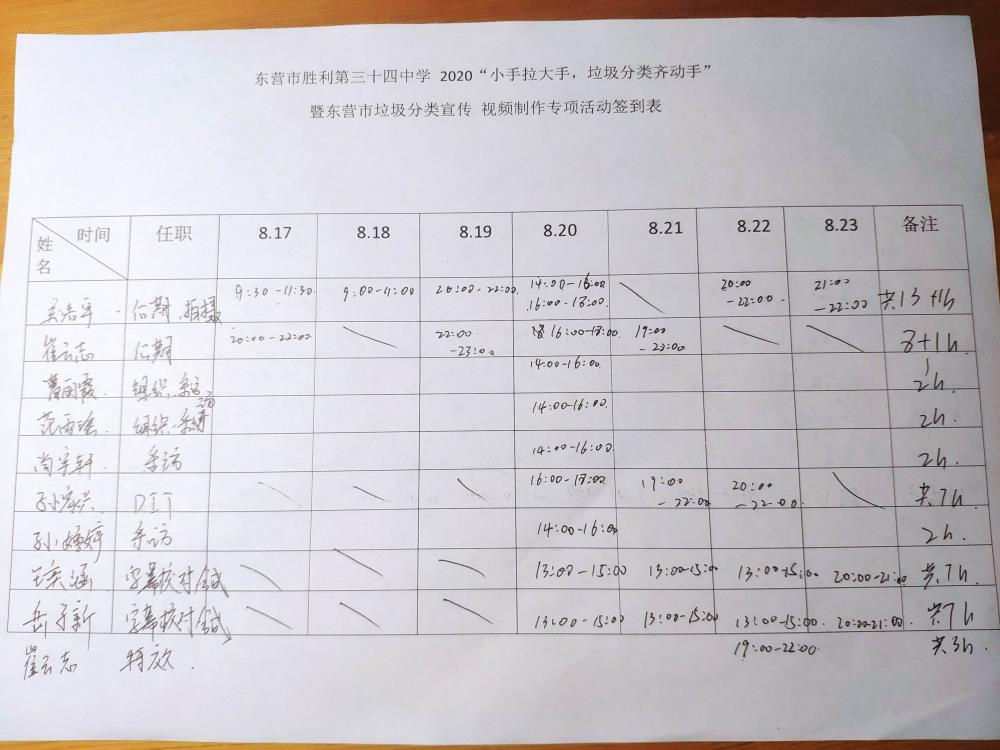 东营市胜利第三十四中学 2020“小手拉大手，垃圾分类齐动手”
暨东营市垃圾分类宣传 视频制作专项活动签到表
时间 姓名 任职 8.17 8.18 8.19 8.20 8.21 8.22 8.23 备注
后期、拍摄 9:30-11:30 9:00-11:00 20:00-22:00 14:00-16:00 16:00-18:00 20:00-22:00 21:00-22:00 共13+1h
崔云志 后期 20:00-22:00 22:00-23:00 16:00-18:00 19:00-23:00 8+1h
组织、采访 14:00-16:00 2h.
范雨 组织、采 14:00-16:00 2h.
尚宇轩 采访 14:00-16:00 2h.
DIT 16:00-18:00 19:00-22:00 20:00-22:00 共7h
采访 14:00-16:00 2h.
王奕涵 字幕核对 13:00-15:00 13:00-15:00 13:00-15:00 20:00-21:00 共7h
岳子新 字幕核对 13:00-15:00 13:00-15:00 13:00-15:00 20:00-21:00 共7h
崔云志 特效 19:00-22:00 共3h.